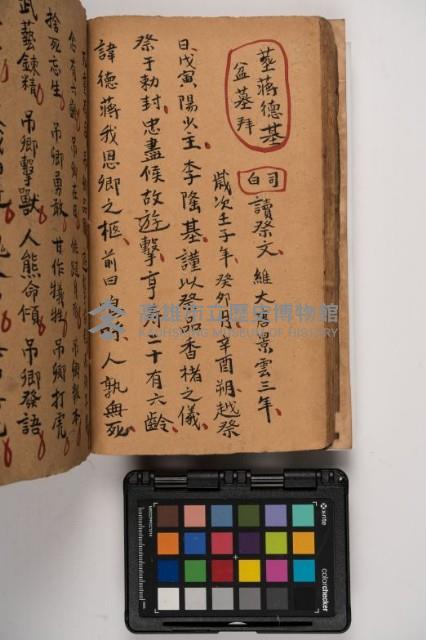 葬蔣德墓
盆墓拜
司白
讀祭文、維大唐景雲三年、
歲次壬子年、癸卯月、辛酉朔、越祭
日、戊寅陽火主、李隆基謹以發品香楮之儀、
祭于勅封、忠盡候故遊擊、享八十有六齡、
諱德蔣我恩卿之柩、前曰、人孰無死、
吊卿發語
人熊命傾
吊卿擊獸
武藝鍊精
吊卿打虎
甘作犧牲
吊卿勇敢
捨死忘生
高雄市立歷史博物館
KAOHSIUNG MUSEUM OF HISTORY
x-rite
colorchecker